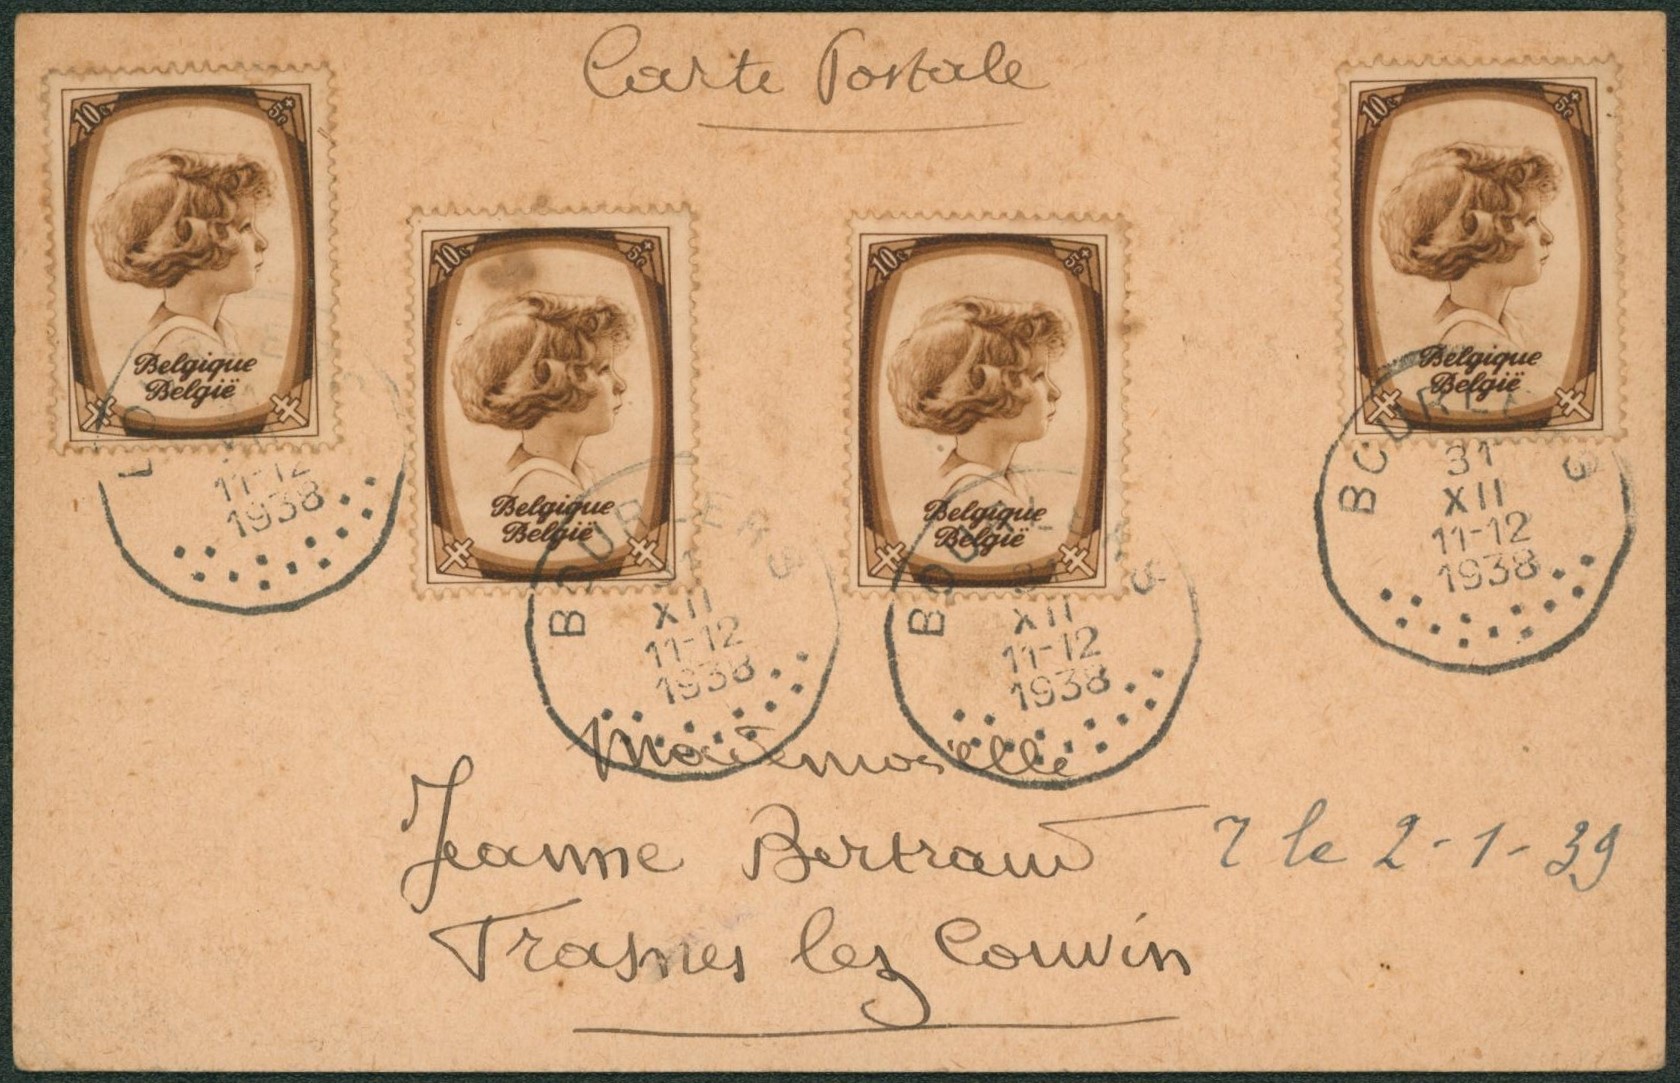 Carte Postale
10c
+5c
Belgique
België
10c
+5c
Belgique
België
10c
+5c
Belgique
België
10c
+5c
Belgique
België
11-12
1938
BOURLERS
31
XII
11-12
1938
BOURLERS
31
XII
11-12
1938
BOURLERS
31
XII
11-12
1938
Mademoiselle
Jeanne Bertrand
le 2-1-39
Frasnes lez Couvin